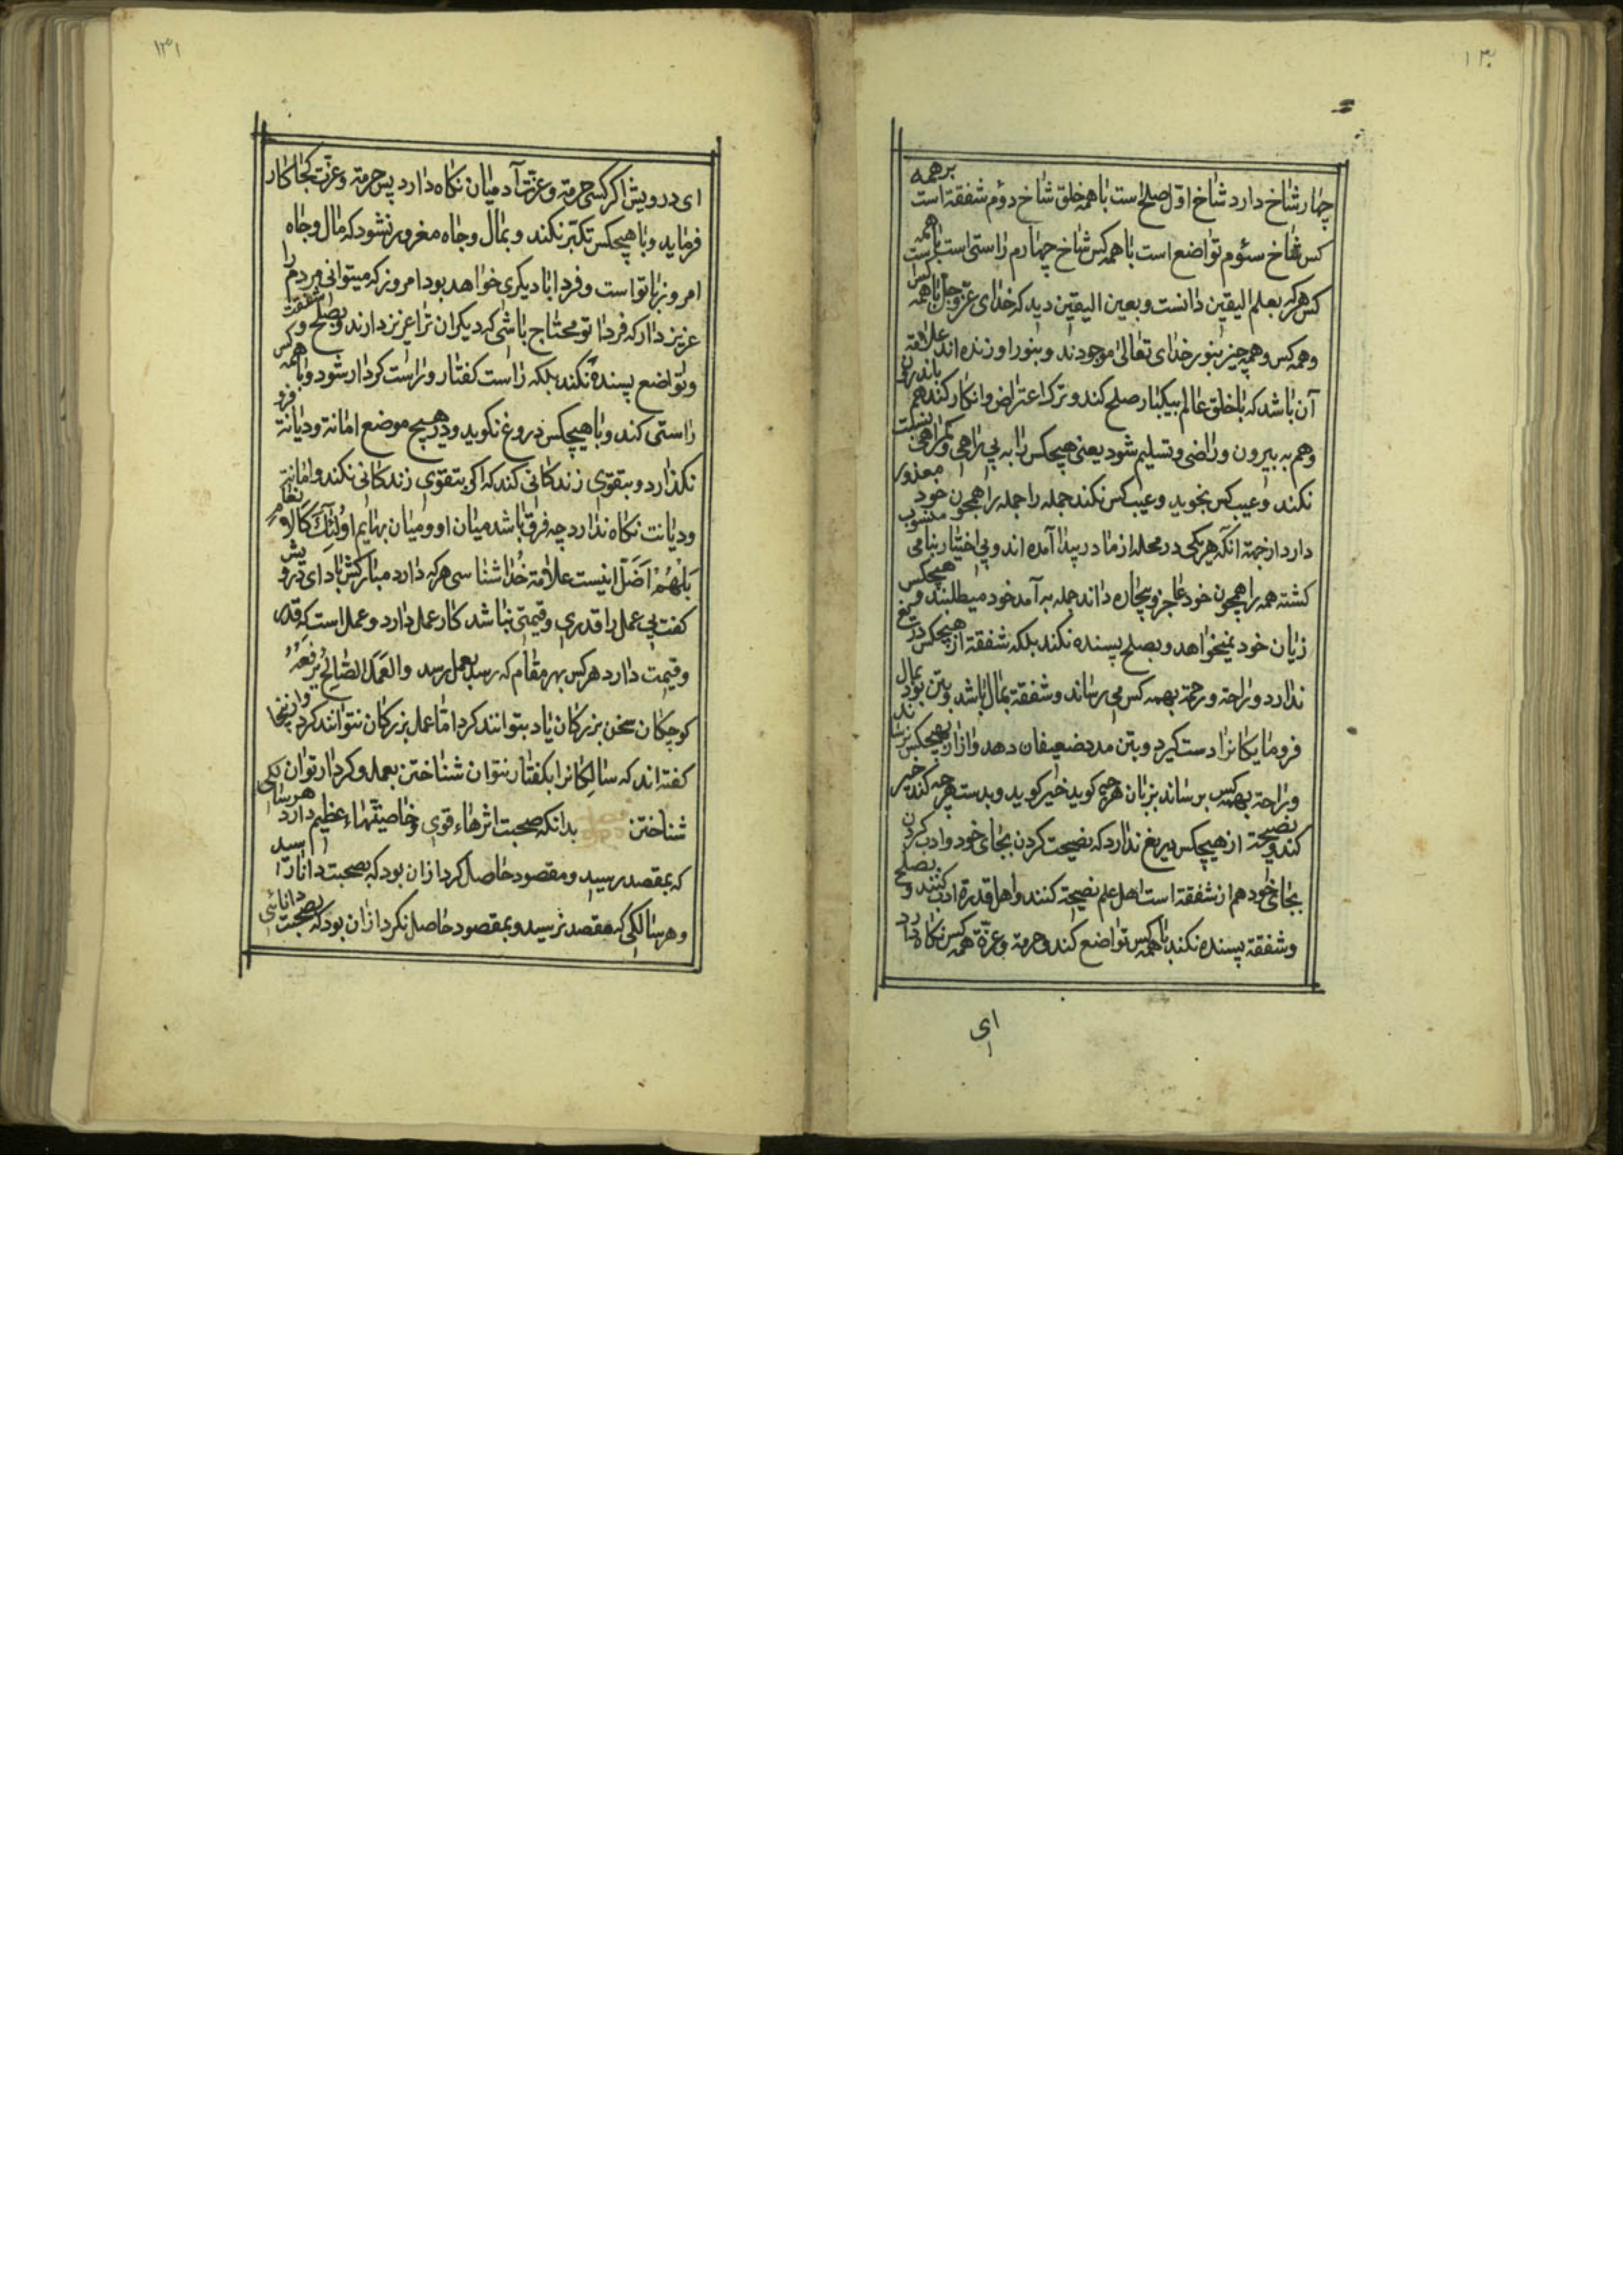 ۱۳۰
چهار شاخ دارد شاخ اوّل صلح است با همه خلق شاخ دوّم شفقة است برهمه
کس شاخ سئوم تواضع است با همه کس شاخ چهارم راستی است با همه
کس هرکه بعلم الیقین دانست و بعین الیقین دید که خدای عزّ و جلّ با همه کس است
و همه کس و همه چیز بنور خدای تعالی موجودند و بنور او زنده اند علامة
آن باشد که با خلق عالم بیکبار صلح کند و ترک اعتراض و انکار کند هم باندرون
و هم به بیرون و راضی و تسلیم شود یعنی هیچکس را به بی راهی و کمراهی نسبت
نکند و عیب کس نجوید و عیب کس نکند جمله را جمله را همچون خود معذور
دارد از جهة انکه هر یکی در محله از مادر پیدا آمده اند و بی اختیار بنامی منسوب
کشته همه را همچون خود عاجز و بیچاره داند جمله بر آمد خود میطلبند و هیچکس
زیان خود نمیخواهد و بصلح پسنده نکند بلکه شفقة از هیچکس دریغ
ندارد و راحة و رحمة بهمه کس می رساند و شفقة بمال باشد و بتن بود بمال
فرومایکانرا دست کیرد و بتن مدد ضعیفان دهد و ازار بهیچکس نرساند
و راحة بهمه کس برساند بزبان هرچی کوید خیر کوید و بدست هرچه کند خیر
کند و نصیحة از هیچکس دریغ ندارد که نصیحت کردن بجای خود و ادب کردن
بجای خود هم از شفقة است اهل علم نصیحة کنند و اهل قدرة ادب کنند و بصلح
و شفقة پسنده نکند با همه کس تواضع کند و حرمة و عزّة همه کس نکاه دارد
ای
۱۳۱
ای درویش اکر کسی حرمة و عزّت آدمیان نکاه دارد پس حرمة و عزّت کجا کار
فرماید و با هیچکس تکبّر نکند و بمال و جاه مغرور نشود که مال و جاه
امروز با تو است و فردا با دیکری خواهد بود امروز که میتوانی مردم را
عزیز دار که فردا تو محتاج باشی که دیکران ترا عزیز دارند و بصلح و شفقت
و تواضع پسنده نکند بلکه راست کفتار و راست کردار شود و با همه کس
راستی کند و با هیچکس دروغ نکوید و در هیچ موضع امانة و دیانة فرو
نکذارد و بتقوی زندکانی کند که اکر بتقوی زندکانی نکند و امانة
و دیانت نکاه ندارد چه فرق باشد میان او و میان بهایم اُولٰئِکَ کَالاَنعام
بَلْ هُمْ اَضَلّ اینست علامة خدا شناسی هرکه دارد مبارکش باد ای درویش
کفت بی عمل را قدری و قیمتی نباشد کار عمل دارد و عمل است که قدر
و قیمت دارد هرکس بهر مقام که رسد بعمل رسد والعَمَلُ الصّالِحُ یَرْفَعُهُ
کوچکان سخن بزرکان یاد بتوانند کرد امّا عمل بزرکان نتوانند کرد و از ینجا
کفته اند که سالِکانرا بکفتار نتوان شناختن بعمل و کردار توان
شناختن بدانکه صحبت اثرهاء قوی و خاصیّتهاء عظیم دارد هر سالکی
که بمقصد رسید و مقصود حاصل کرد از ان بود که بصحبت دانا رسید
و هر سالکی که بمقصد نرسید و بمقصود حاصل نکرد از ان بود که بصحبت دانائی